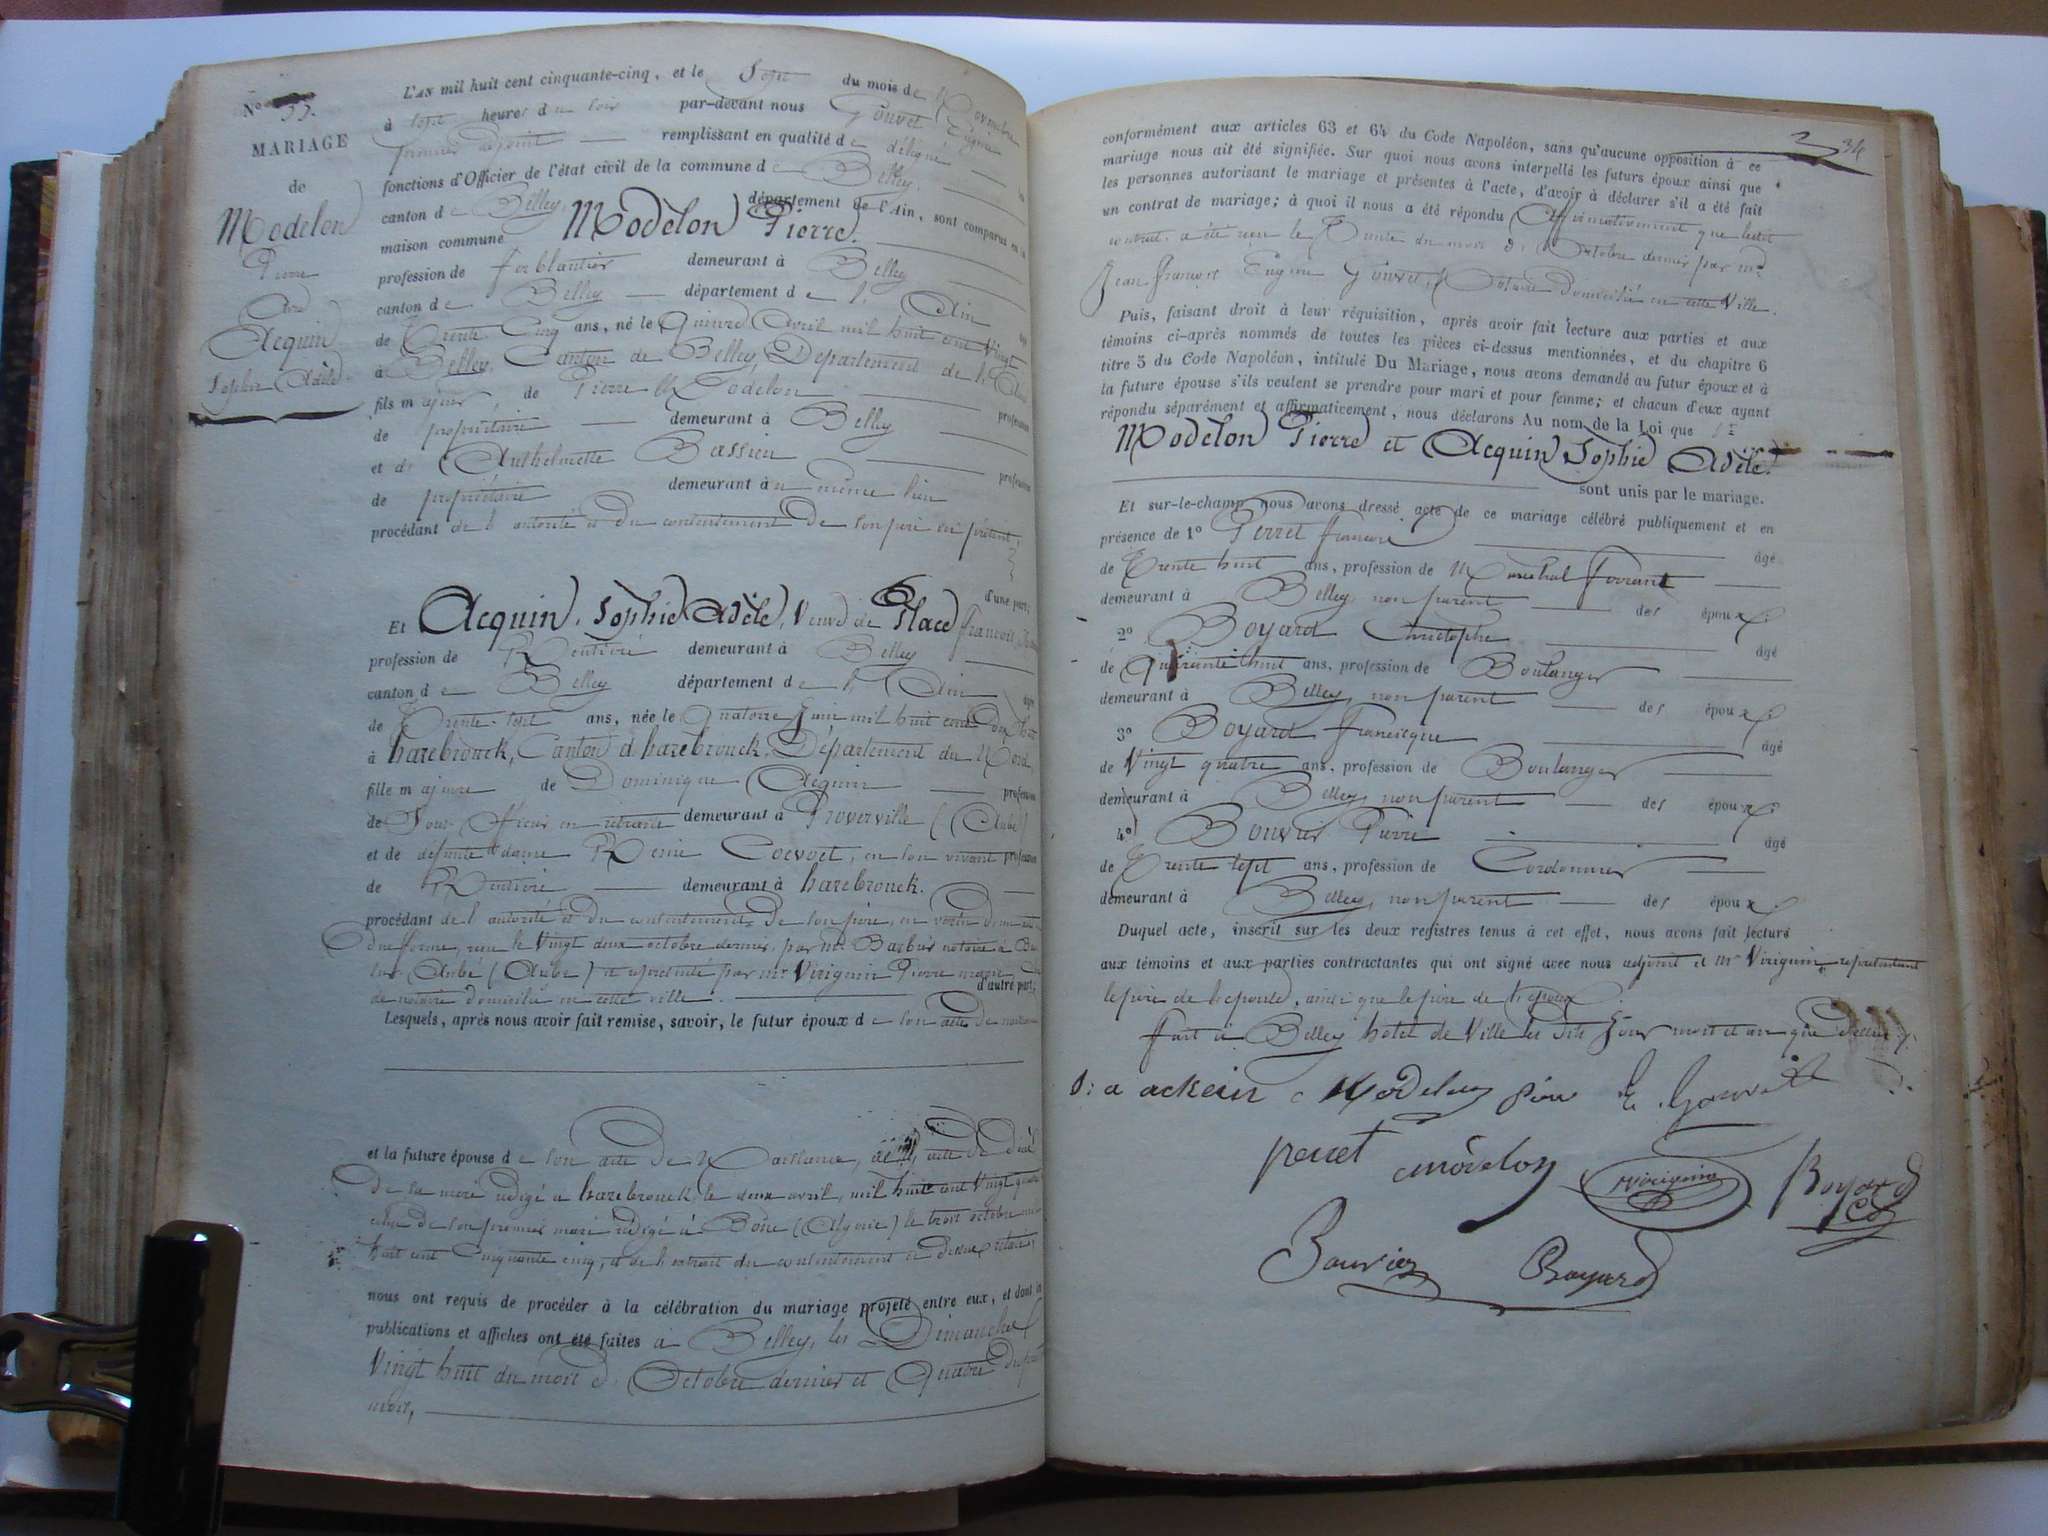 No 33.
MARIAGE
de
Modelon
Pierre
avec
Acquin
Sophie Adèle.
L'AN mil huit cent cinquante-cinq, et le Sept du mois de Novembre
à Sept heures du soir par-devant nous Gouvet Eugène
premier adjoint remplissant en qualité de délégué les
fonctions d'Officier de l'état civil de la commune de Belley,
canton de Belley, département de l'Ain, sont comparus en la
maison commune Modelon Pierre.
profession de ferblantier demeurant à Belley
canton de Belley département de l'Ain âgé
de Trente Cinq ans, né le Quinze Avril mil huit cent Vingt
à Belley, Canton de Belley, Département de l'Ain
fils majeur de Pierre Modelon profession
de propriétaire demeurant à Belley
et de Anthelmette Bassieu profession
de propriétaire demeurant à u même lieu
procédant de l'autorité et du consentement de son père ici présent,
d'une part;
Et Acquin, Sophie Adèle, Veuve de Place françois
profession de Rentière demeurant à Belley
canton de Belley département de l'Ain âgée
de Trente-Sept ans, née le Quatorze Juin mil huit cent Dix huit
à hazebrouck, Canton d'hazebrouck, Département du Nord,
fille majeure de Dominique Acquin profession
de Sous Officier en retraite demeurant à Proverville (Aube)
et de défunte dame Rosine Coevoet, en son vivant profession
de Rentière demeurant à hazebrouck.
procédant de l'autorité et du consentement de son père, en vertu d'un
due forme, reçu le Vingt deux octobre dernier, par Me Barbier notaire à Bar
sur Aube (Aube) et représenté par Mr Virignin Pierre
de notaire domicilié en cette ville. d'autre part;
Lesquels, après nous avoir fait remise, savoir, le futur époux de son acte de naissance
et la future épouse de son acte de Naissance, acte de décès
de la mère rédigé à hazebrouck, le deux avril, mil huit cent Vingt quatre
celui de son premier mari rédigé à Bône (Algérie) le trois octobre mil
huit cent Cinquante cinq, et de l'extrait du consentement ci dessus relaté,
nous ont requis de procéder à la célébration du mariage projeté entre eux, et dont les
publications et affiches ont été faites à Belley, les Dimanches
Vingt huit du mois d'Octobre dernier et Quatre du présent
mois,
34
conformément aux articles 63 et 64 du Code Napoléon, sans qu'aucune opposition à ce
mariage nous ait été signifiée. Sur quoi nous avons interpellé les futurs époux ainsi que
les personnes autorisant le mariage et présentes à l'acte, d'avoir à déclarer s'il a été fait
un contrat de mariage; à quoi il nous a été répondu Affirmativement que ledit
contrat a été reçu le Trente du mois d'Octobre dernier par Me
Jean François Eugène Gouvet, Notaire domicilié en cette Ville.
Puis, faisant droit à leur réquisition, après avoir fait lecture aux parties et aux
témoins ci-après nommés de toutes les pièces ci-dessus mentionnées, et du chapitre 6
titre 5 du Code Napoléon, intitulé Du Mariage, nous avons demandé au futur époux et à
la future épouse s'ils veulent se prendre pour mari et pour femme; et chacun d'eux ayant
répondu séparément et affirmativement, nous déclarons Au nom de la Loi que
Modelon Pierre et Acquin Sophie Adèle.
sont unis par le mariage.
Et sur-le-champ nous avons dressé acte de ce mariage célébré publiquement et en
présence de 1° Perret françois âgé
de Trente huit ans, profession de Maréchal ferrant
demeurant à Belley non parent des époux.
2° Boyard Christophe âgé
de Quarante huit ans, profession de Boulanger
demeurant à Belley, non parent des époux.
3° Boyard Francisque âgé
de Vingt quatre ans, profession de Boulanger
demeurant à Belley, non parent des époux.
4° Bouvier Pierre âgé
de Trente sept ans, profession de Cordonnier
demeurant à Belley, non parent des époux.
Duquel acte, inscrit sur les deux registres tenus à cet effet, nous avons fait lecture
aux témoins et aux parties contractantes qui ont signé avec nous adjoint et Mr Virignin, représentant
le père de l'épouse, ainsi que le père de l'époux.
fait à Belley hôtel de Ville les dits Jour mois et an que dessus.
S: a ackein Modelon père E. Gouvet
perret modelon Virignin Boyard
Bouvier Boyard